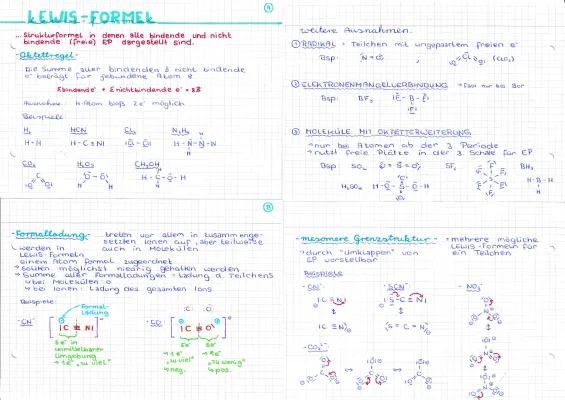 LEWIS-FORMEL
... Strukturformel in denen alle bindende und nicht
bindende (freie) EP dargestellt sind.
-Oktettregel-
Die Summe aller bindenden & nicht bindende
e⁻ beträgt für gebundene Atom 8
Σbindende⁻ + Σnichtbindende e⁻ = 8
Ausnahme: H-Atom bloß 2e⁻ möglich
Beispiele:
H₂ HCN Cl₂ N₂H₄
H-H H-C≡N|
CO₂ H₂O₂ CH₃OH
A
weitere Ausnahmen:
① RADIKAL = Teilchen mit ungepaartem freien e⁻
Bsp: (ClO₂)
② ELEKTRONENMANGELVERBINDUNG → fast nur bei Bor
Bsp: BF₃
③ MOLEKÜLE MIT OKTETTERWEITERUNG
→ nur bei Atomen ab der 3. Periode
→ nutzt freie Plätze in der 3. Schale für EP
Bsp: SO₂ SF₆ BH₃
H₂SO₄
B
-Formalladung- treten vor allem in zusammenge-
setzten Ionen auf, aber teilweise
auch in Molekülen
werden in
LEWIS-Formeln
einem Atom formal zugeordnet
→ sollten möglichst niedrig gehalten werden
→ Summe aller Formalladungen = Ladung d. Teilchens
bei Molekülen: 0
bei Ionen: Ladung des gesamten Ions
Beispiele:
Formal-
ladung
-CN⁻ [|C≡N|]⁻
-CO [|C≡O|]
5e⁻ in
unmittelbarer
Umgebung
→ 1e⁻ "zu viel"
5e⁻ 5e⁻
→1e⁻ →1e⁻
"zu viel" "zu wenig"
→neg. →pos.
-mesomere Grenzstruktur- → mehrere mögliche
LEWIS-Formeln für
ein Teilchen
→ durch "umklappen" von
EP vorstellbar
Beispiele
-CN⁻ -SCN⁻ -NO₃⁻
-CO₃²⁻